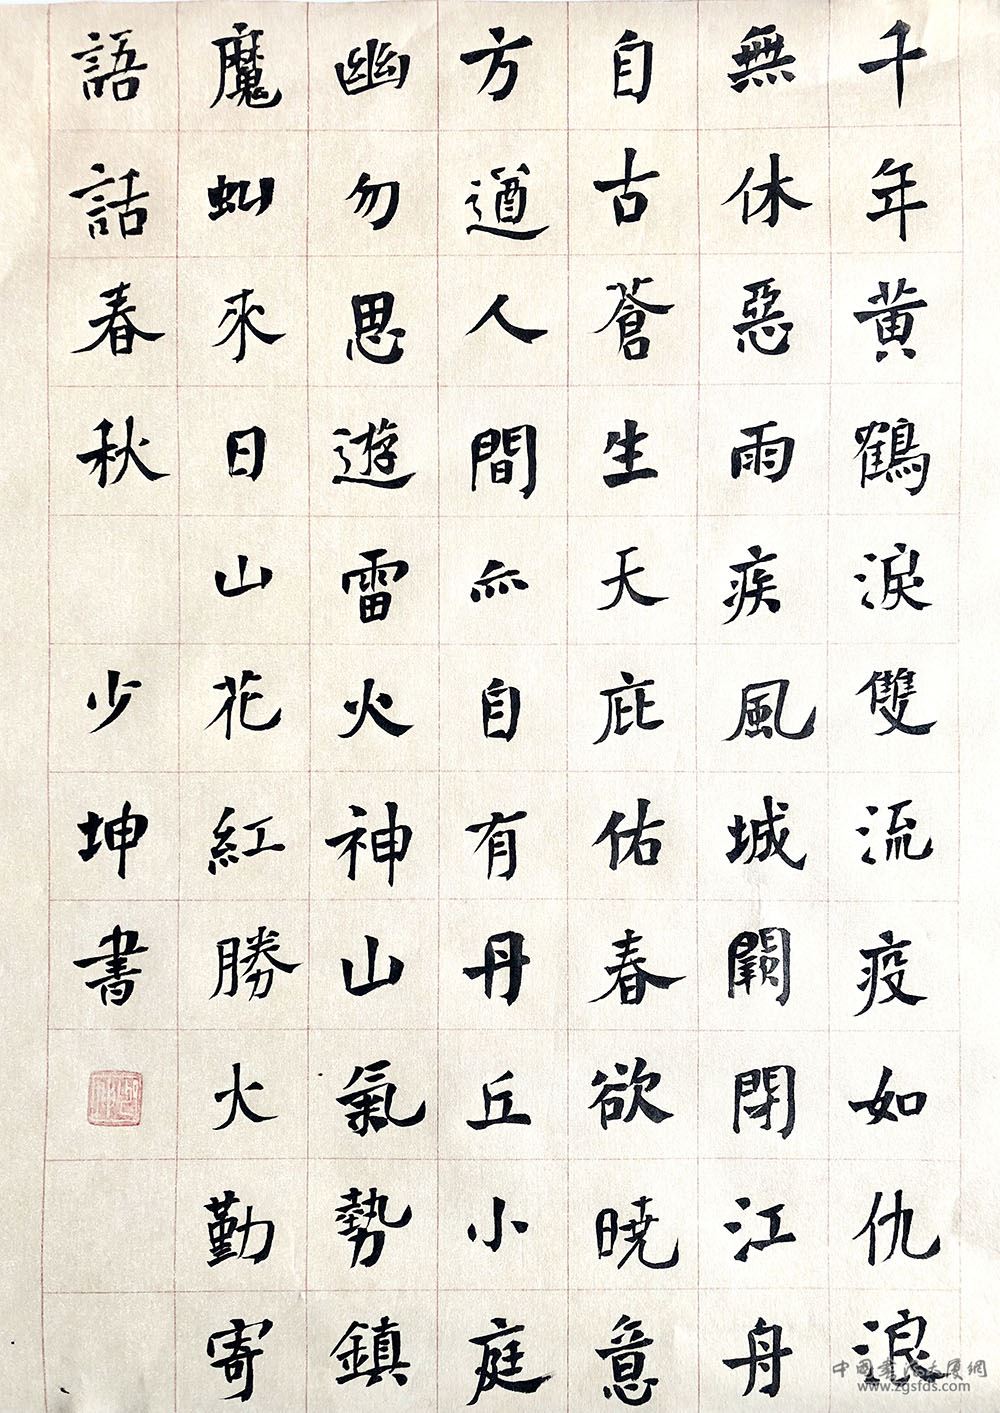 千年黄鶴淚雙流疫如仇浪
無休惡雨疾風城闕閉江舟
自古蒼生天庇佑春欲曉意
方遒人間亦自有丹丘小庭
幽勿思遊雷火神山氣勢鎮
魔虯來日山花紅勝火勤寄
語話春秋 少坤書
中国書法大厦網
www.zgsfds.com